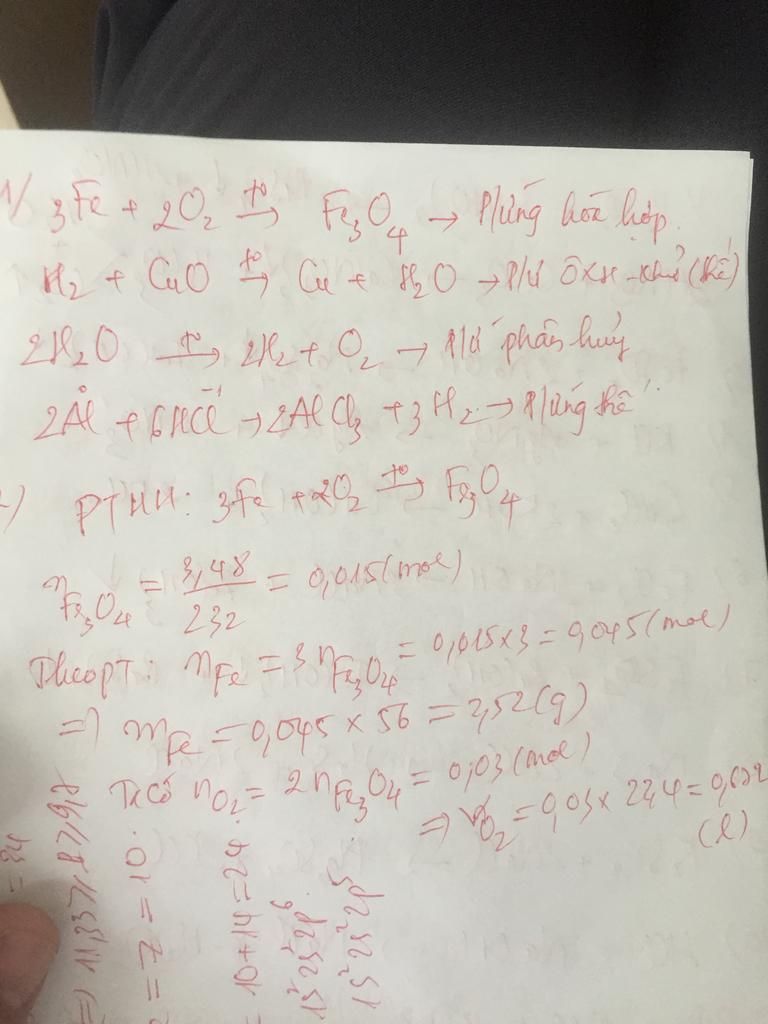 1/ 3Fe + 2O₂ →(t⁰) Fe₃O₄ → P/ứng hóa hợp.
H₂ + CuO →(t⁰) Cu + H₂O → P/ứ ÔXH-khử (thế)
2H₂O →(t⁰) 2H₂ + O₂ → P/ứ phân hủy
2Al⁰ + 6HCl⁻¹ → 2AlCl₃ + 3H₂ → P/ứng thế
) PTHH: 3Fe + 2O₂ →(t⁰) Fe₃O₄
n Fe₃O₄ = 3,48/232 = 0,015 (mol)
Theo PT: nFe = 3nFe₃O₄ = 0,015 x 3 = 0,045 (mol)
=> mFe = 0,045 x 56 = 2,52 (g)
Ta có nO₂ = 2nFe₃O₄ = 0,03 (mol)
=> VO₂ = 0,03 x 22,4 = 0,672 (l)
= 34
=> 11,33 / 8,7 / 9,7
= 7 = 10.
= 10 + 14 = 24.
1s² 2s² 2p⁶
1s² 2s² 2p⁵